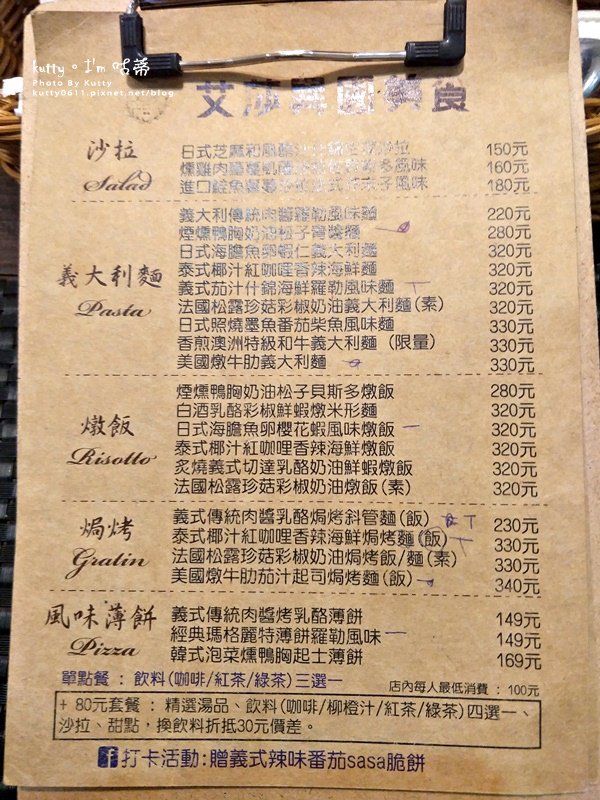 kutty。I'm 咕蒂
Photo By Kutty
kutty0611.pixnet.net/blog
艾莎異國美食
沙拉
Salad
日式芝麻和風 150元
燻雞肉 風味 160元
進口鮭魚 風味 180元
義大利麵
Pasta
義大利傳統肉醬羅勒風味麵 220元
煙燻鴨胸奶油松子青醬麵 280元
日式海膽魚卵蝦仁義大利麵 320元
泰式椰汁紅咖哩香辣海鮮麵 320元
義式茄汁什錦海鮮羅勒風味麵 320元
法國松露珍菇彩椒奶油義大利麵(素) 320元
日式照燒墨魚番茄柴魚風味麵 330元
香煎澳洲特級和牛義大利麵 (限量) 330元
美國燉牛肋義大利麵 330元
燉飯
Risotto
煙燻鴨胸奶油松子貝斯多燉飯 280元
白酒乳酪彩椒鮮蝦燉米形麵 320元
日式海膽魚卵櫻花蝦風味燉飯 320元
泰式椰汁紅咖哩香辣海鮮燉飯 320元
炙燒義式切達乳酪奶油鮮蝦燉飯 320元
法國松露珍菇彩椒奶油燉飯(素) 320元
焗烤
Gratin
義式傳統肉醬乳酪焗烤斜管麵(飯) 230元
泰式椰汁紅咖哩香辣海鮮焗烤麵(飯) 330元
法國松露珍菇彩椒奶油焗烤飯/麵(素) 330元
美國燉牛肋茄汁起司焗烤麵(飯) 340元
風味薄餅
Pizza
義式傳統肉醬烤乳酪薄餅 149元
經典瑪格麗特薄餅羅勒風味 149元
韓式泡菜燻鴨胸起士薄餅 169元
單點餐 : 飲料(咖啡/紅茶/綠茶)三選一
店內每人最低消費 : 100元
+ 80元套餐 : 精選湯品、飲料(咖啡/柳橙汁/紅茶/綠茶)四選一、
沙拉、甜點，換飲料折抵30元價差。
f 打卡活動:贈義式辣味番茄sasa脆餅